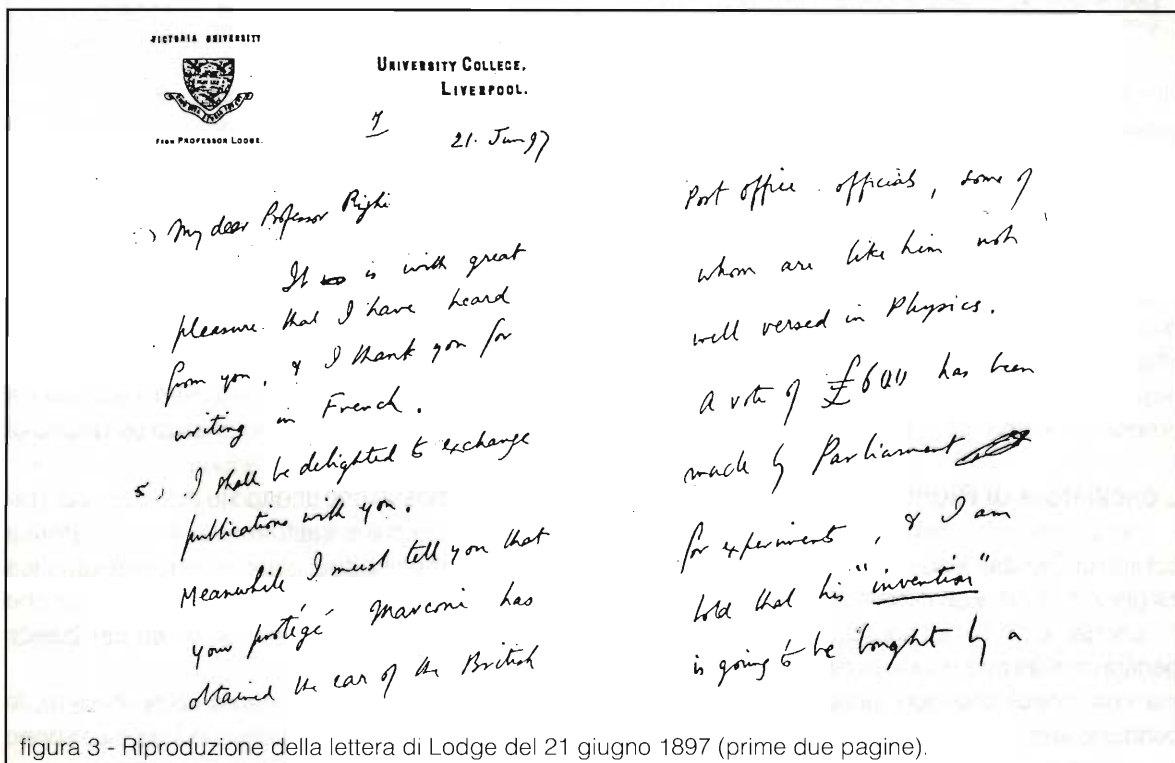 VICTORIA UNIVERSITY
FROM PROFESSOR LODGE.
UNIVERSITY COLLEGE,
LIVERPOOL.
21. Jun 97
My dear Professor Righi
It is with great
pleasure that I have heard
from you, & I thank you for
writing in French.
I shall be delighted to exchange
publications with you.
Meanwhile I must tell you that
your protégé Marconi has
obtained the ear of the British
Post office officials, some of
whom are like him not
well versed in Physics.
A vote of £600 has been
made by Parliament
for experiments, & I am
told that his "invention"
is going to be bought by a
figura 3 - Riproduzione della lettera di Lodge del 21 giugno 1897 (prime due pagine).